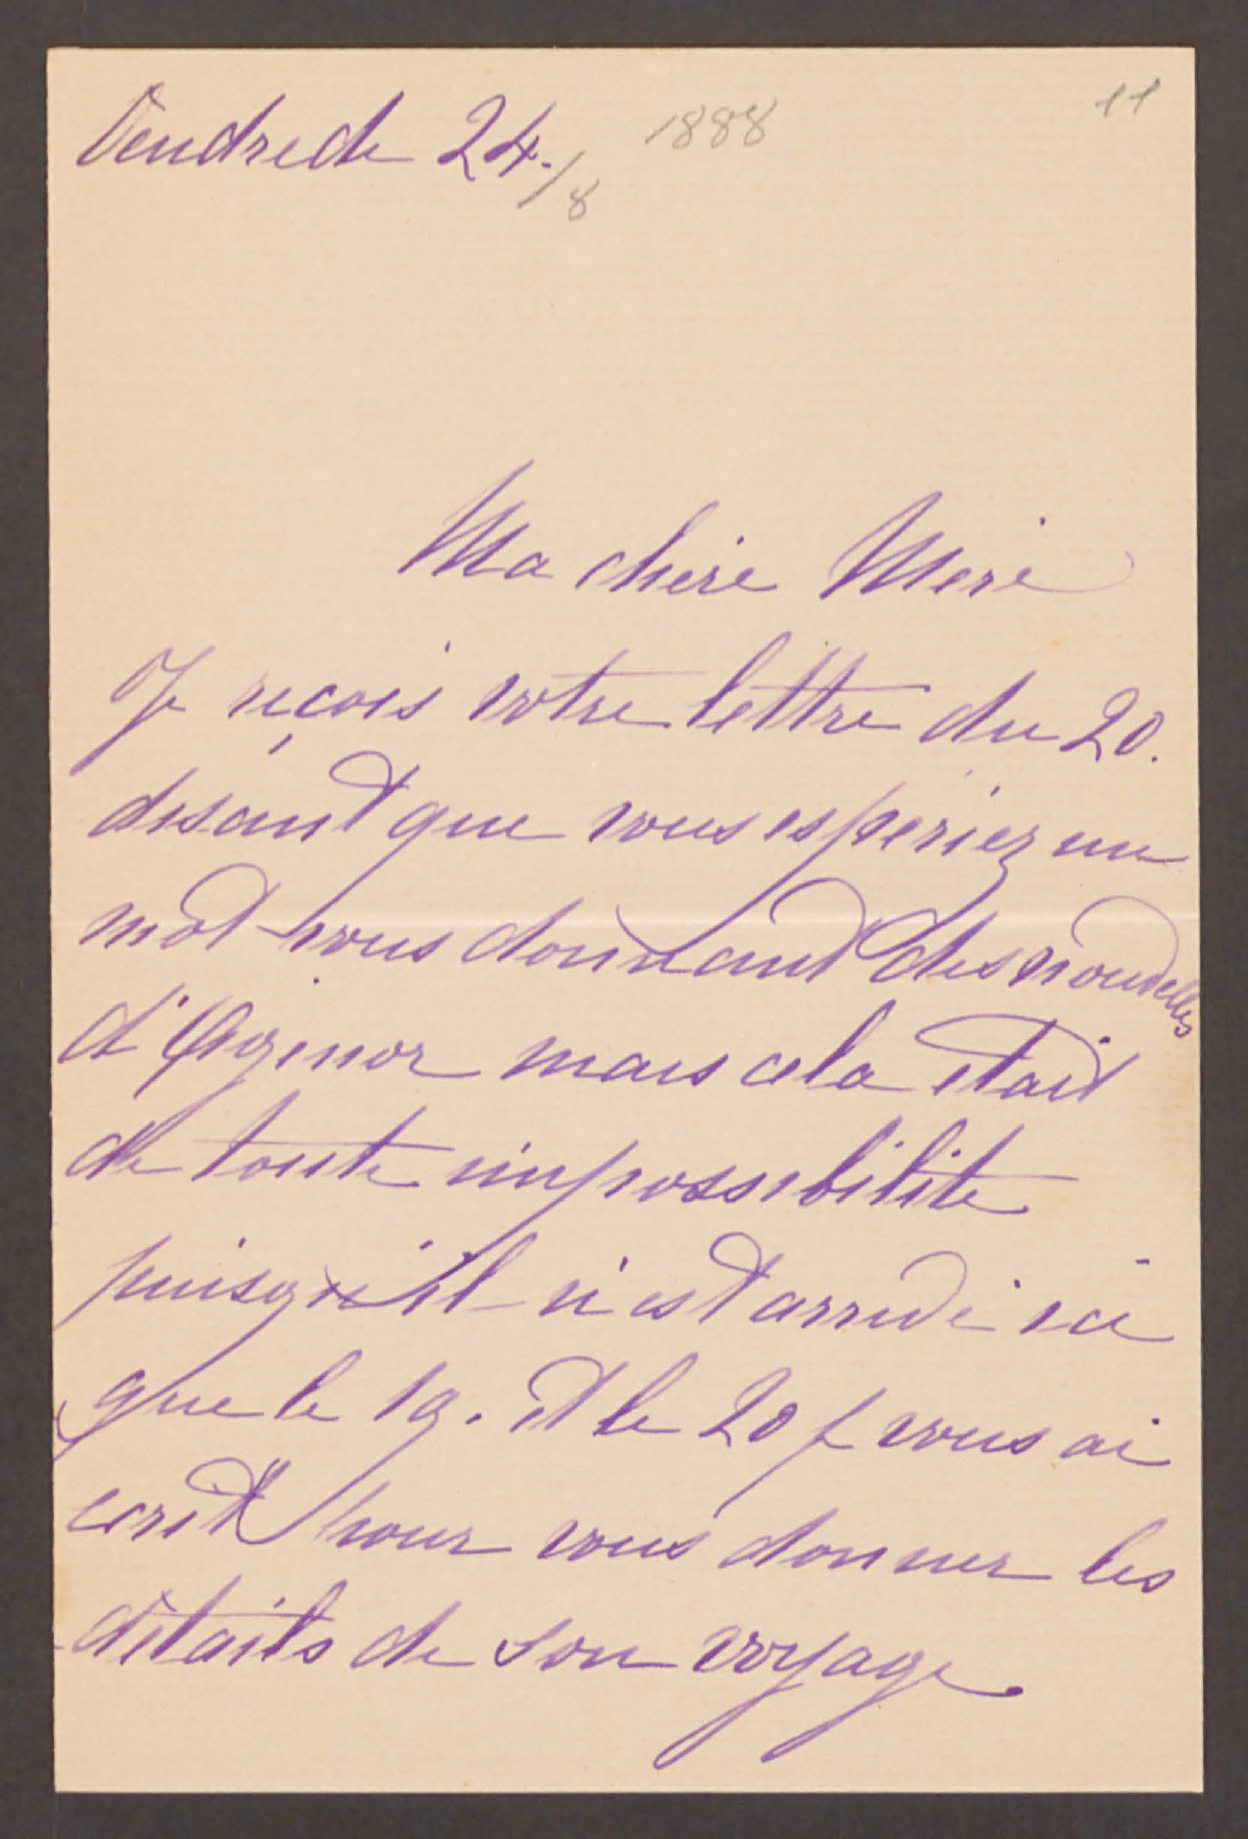 Vendredi 24./8 1888 11
Ma chère Mère
Je reçois votre lettre du 20.
disant que vous espériez un
mot vous donnant des nouvelles
d'Agénor mais cela était
de toute impossibilité
puisqu'il n'est arrivé ici
que le 19. et le 20 je vous ai
écrit pour vous donner les
détails de son voyage